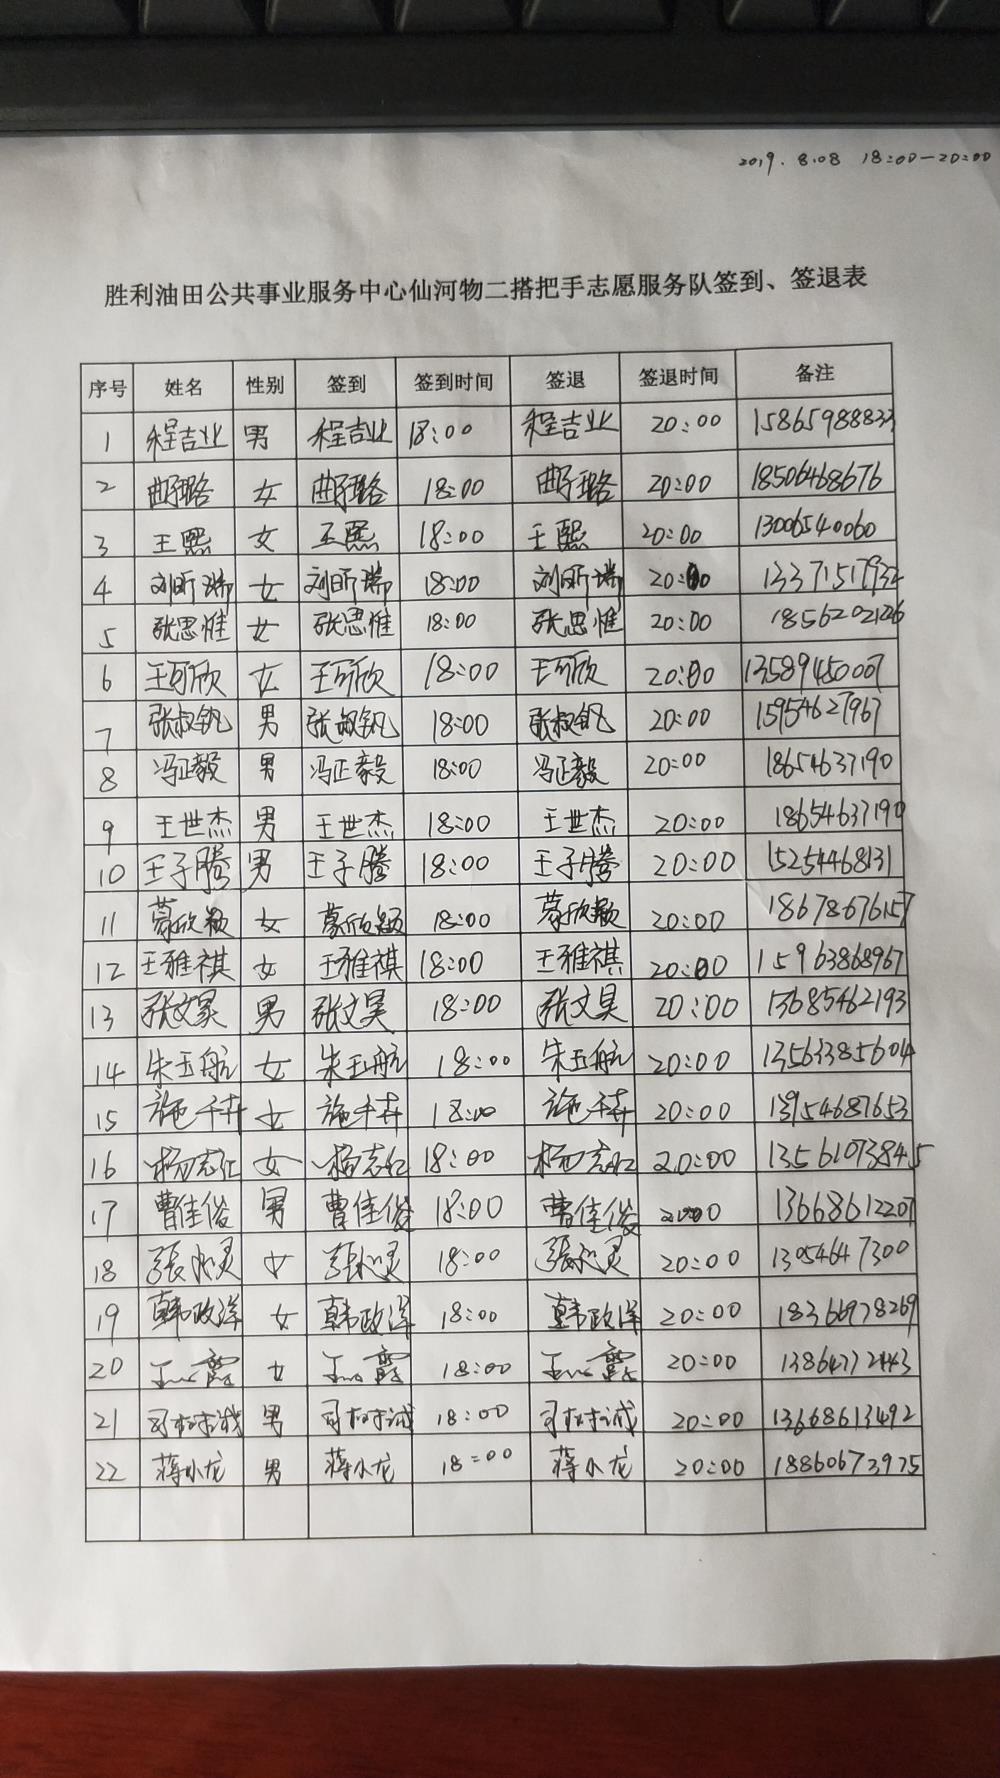 2019.8.08 18:00-20:00
胜利油田公共事业服务中心仙河物二搭把手志愿服务队签到、签退表
序号 姓名 性别 签到 签到时间 签退 签退时间 备注
1 程吉业 男 程吉业 18:00 程吉业 20:00 15865988833
2 女 18:00 20:00 18506468676
3 王熙 女 王熙 18:00 王熙 20:00 13006540060
4 刘昕瑞 女 刘昕瑞 18:00 刘昕瑞 20:00 13371517934
5 张思惟 女 张思惟 18:00 张思惟 20:00 18562021226
6 王可欣 女 王可欣 18:00 王可欣 20:00 13589450007
7 张叔钒 男 张叔钒 18:00 张叔钒 20:00 15954627967
8 冯正毅 男 冯正毅 18:00 冯正毅 20:00 18654637190
9 王世杰 男 王世杰 18:00 王世杰 20:00 18654637190
10 王子腾 男 王子腾 18:00 王子腾 20:00 15254468131
11 蒙欣颖 女 蒙欣颖 18:00 蒙欣颖 20:00 18678676157
12 王雅祺 女 王雅祺 18:00 王雅祺 20:00 15963868967
13 张文昊 男 张文昊 18:00 张文昊 20:00 13685462193
14 朱玉航 女 朱玉航 18:00 朱玉航 20:00 13563385604
15 施千卉 女 施千卉 18:00 施千卉 20:00 13954687653
16 杨志红 女 杨志红 18:00 杨志红 20:00 13561073845
17 曹佳俊 男 曹佳俊 18:00 曹佳俊 20:00 13668612207
18 女 18:00 20:00 13054647300
19 韩政洋 女 韩政洋 18:00 韩政洋 20:00 18366978269
20 女 18:00 20:00 13864772443
21 司树诚 男 司树诚 18:00 司树诚 20:00 13668613492
22 蒋小龙 男 蒋小龙 18:00 蒋小龙 20:00 18860673975